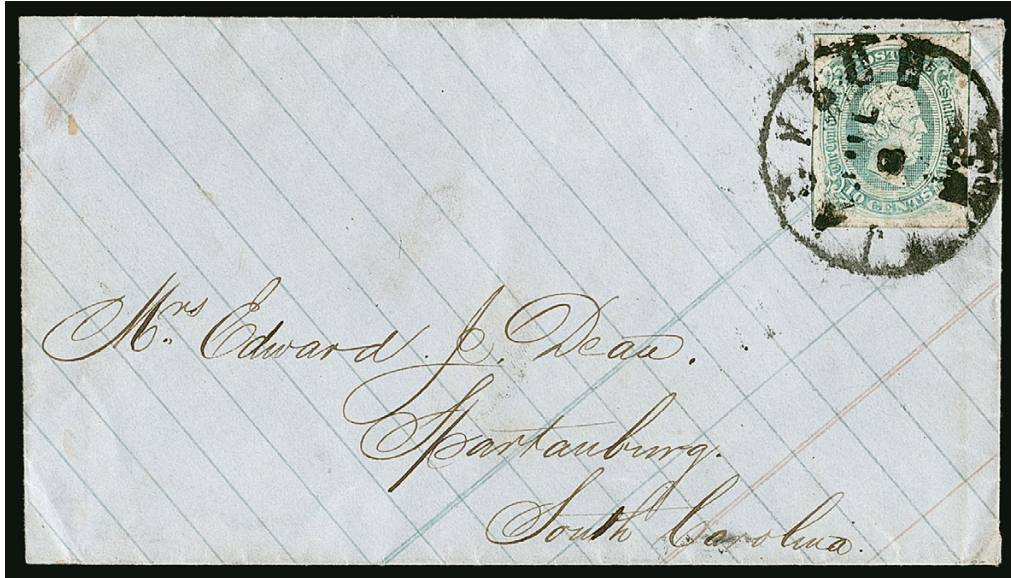 POSTAGE
TEN CENTS
Mrs Edward J. Dean.
Spartanburg.
South Carolina.